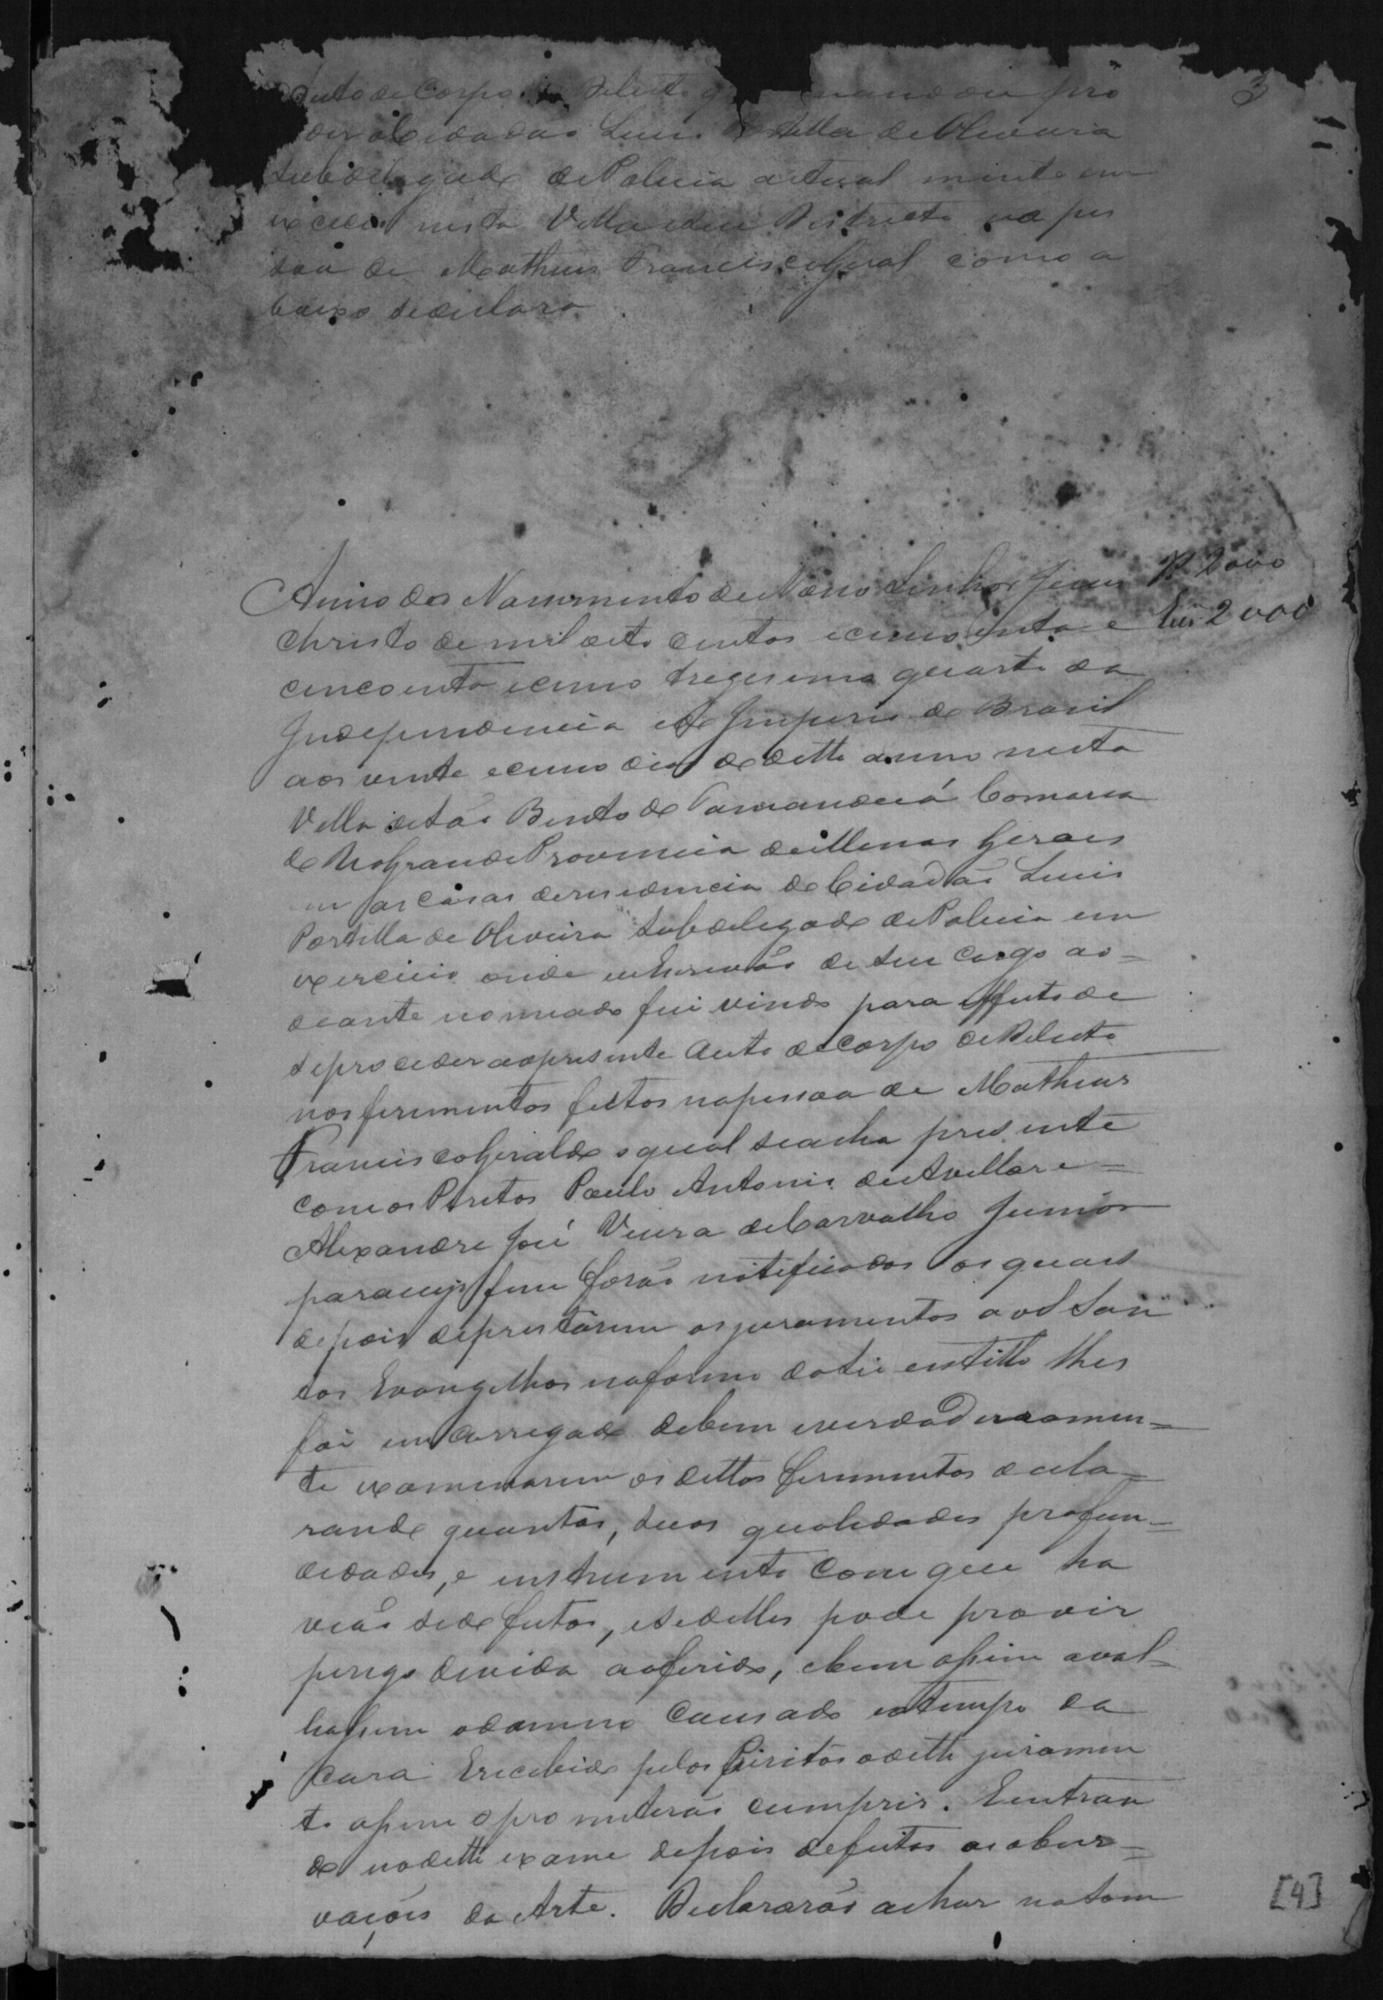 3
Auto de Corpo de Delicto q mandou pro
der o Cidadão Luis Portella de Oliveira
Subdelegado de Policia actual mente em
exercicio nesta Villa e seu Districto na pes
soa de Matheus Francisco Geraldo como a
baixo se declara.
Anno do Nascimento de Nosso Senhor Jesus
Christo de mil oito centos e cincoenta e
cincoenta e cinco trigesimo quarto da
Independencia e do Imperio do Brasil
aos vinte e cinco dias do ditto anno nesta
Villa de São Bento do Tamanduá Comarca
do Rio Grande Provincia de Minas Gerais
em as casas de residencia do Cidadão Luis
Portella de Oliveira Subdelegado de Policia em
exercicio onde eu Escrivão de seu cargo ao=
deante nomeado fui vindo para effeito de
se proceder ao presente Auto de Corpo de Delicto
nos ferimentos feitos na pessoa de Matheus
Francisco Geraldo o qual se acha presente
com os Peritos Paulo Antonio de Avellar e=
Alexandre José Vieira de Carvalho Junior
para cujo fim forão notificados os quaes
depois de prestarem os juramentos aos San
tos Evangelhos na forma do estillo lhes
foi encarregado de bem e verdadeiramen=
te examinarem os dittos ferimentos decla=
rando quantos, suas qualidades profun=
didades, e instrumento com que ha
vião sido feitos, e se delles pode provir
perigo de vida ao ferido, e bem assim aval=
liassem o damno causado e o tempo da
cura E recebido pelos Peritos o ditto juramen
to assim o prometerão cumprir. E entran
do no ditto exame depois de feitas as obser=
vações da Arte. Declararão achar na tom
R 2000
2000
[4]